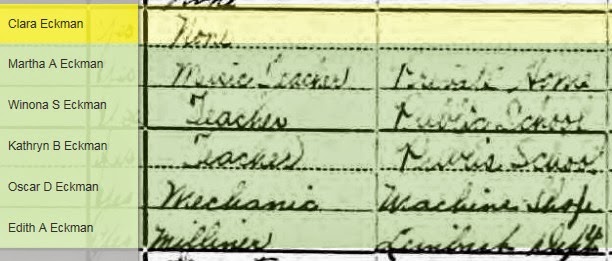 None
Clara Eckman Yes None
Martha A Eckman Music Teacher Private Home
Winona S Eckman Teacher Public School
Kathryn B Eckman Teacher Public School
Oscar D Eckman Yes Mechanic Machine Shop
Edith A Eckman Yes Milliner Dept